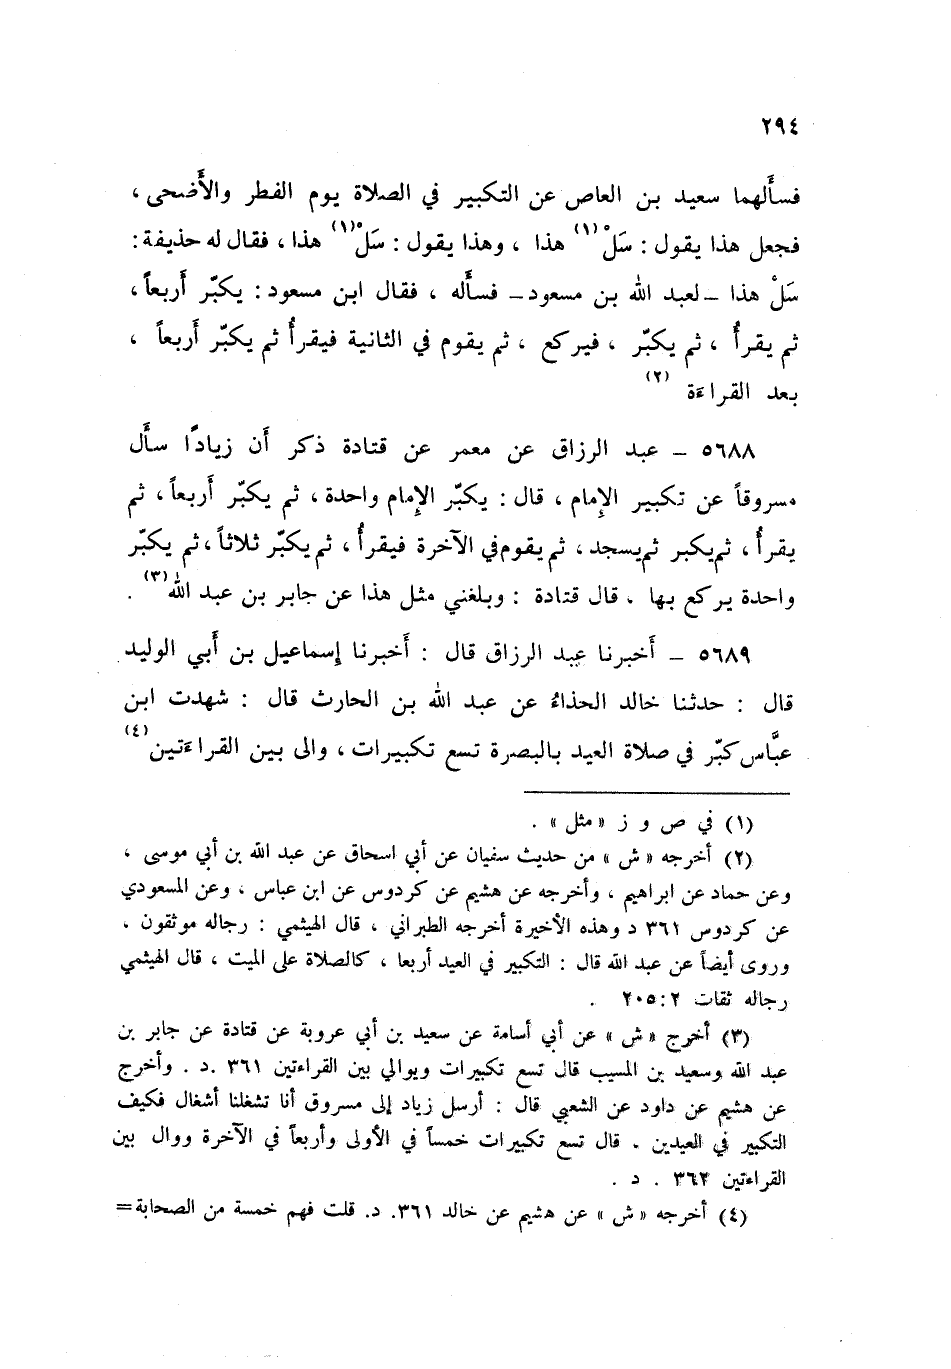 ٢٩٤
فسأَلهما سعيد بن العاص عن التكبير في الصلاة يوم الفطر والأَضحى ،
فجعل هذا يقول : سَلْ (١) هذا ، وهذا يقول : سَلْ (١) هذا ، فقال له حذيفة :
سَلْ هذا – لعبد الله بن مسعود – فسأَله ، فقال ابن مسعود : يكبّر أَربعاً ،
ثم يقرأُ ، ثم يكبّر ، فيركع ، ثم يقوم في الثانية فيقرأُ ثم يكبّر أَربعاً ،
بعد القراءة (٢)
٥٦٨٨ – عبد الرزاق عن معمر عن قتادة ذكر أَن زيادًا سأَل
مسروقاً عن تكبير الإِمام ، قال : يكبّر الإِمام واحدة ، ثم يكبّر أَربعاً ، ثم
يقرأُ ، ثم يكبر ثم يسجد ، ثم يقوم في الآخرة فيقرأُ ، ثم يكبّر ثلاثاً ، ثم يكبّر
واحدة يركع بها . قال قتادة : وبلغني مثل هذا عن جابر بن عبد الله (٣) .
٥٦٨٩ – أَخبرنا عبد الرزاق قال : أَخبرنا إِسماعيل بن أَبي الوليد
قال : حدثنا خالد الحذاءُ عن عبد الله بن الحارث قال : شهدت ابن
عبَّاس كبّر في صلاة العيد بالبصرة تسع تكبيرات ، والى بين القراءتين (٤)
(١) في ص و ز « مثل » .
(٢) أخرجه « ش » من حديث سفيان عن أبي اسحاق عن عبد الله بن أبي موسى ،
وعن حماد عن ابراهيم ، وأخرجه عن هشيم عن كردوس عن ابن عباس ، وعن المسعودي
عن كردوس ٣٦١ د وهذه الأخيرة أخرجه الطبراني ، قال الهيثمي : رجاله موثقون ،
وروى أيضاً عن عبد الله قال : التكبير في العيد أربعا ، كالصلاة على الميت ، قال الهيثمي
رجاله ثقات ٢ : ٢٠٥ .
(٣) أخرج « ش » عن أبي أسامة عن سعيد بن أبي عروبة عن قتادة عن جابر بن
عبد الله وسعيد بن المسيب قال تسع تكبيرات ويوالي بين القراءتين ٣٦١ .د . وأخرج
عن هشيم عن داود عن الشعبي قال : أرسل زياد إلى مسروق أنا تشغلنا أشغال فكيف
التكبير في العيدين . قال تسع تكبيرات خمساً في الأولى وأربعاً في الآخرة ووال بين
القراءتين ٣٦٢ . د .
(٤) أخرجه « ش » عن هشيم عن خالد ٣٦١. د. قلت فهم خمسة من الصحابة =